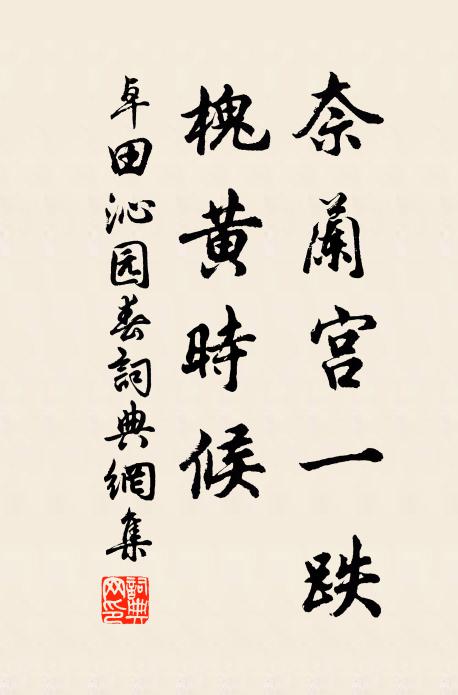 奈蘭宮一跌
槐黄時候
卓田沁园春詞典網集
詞典
网印